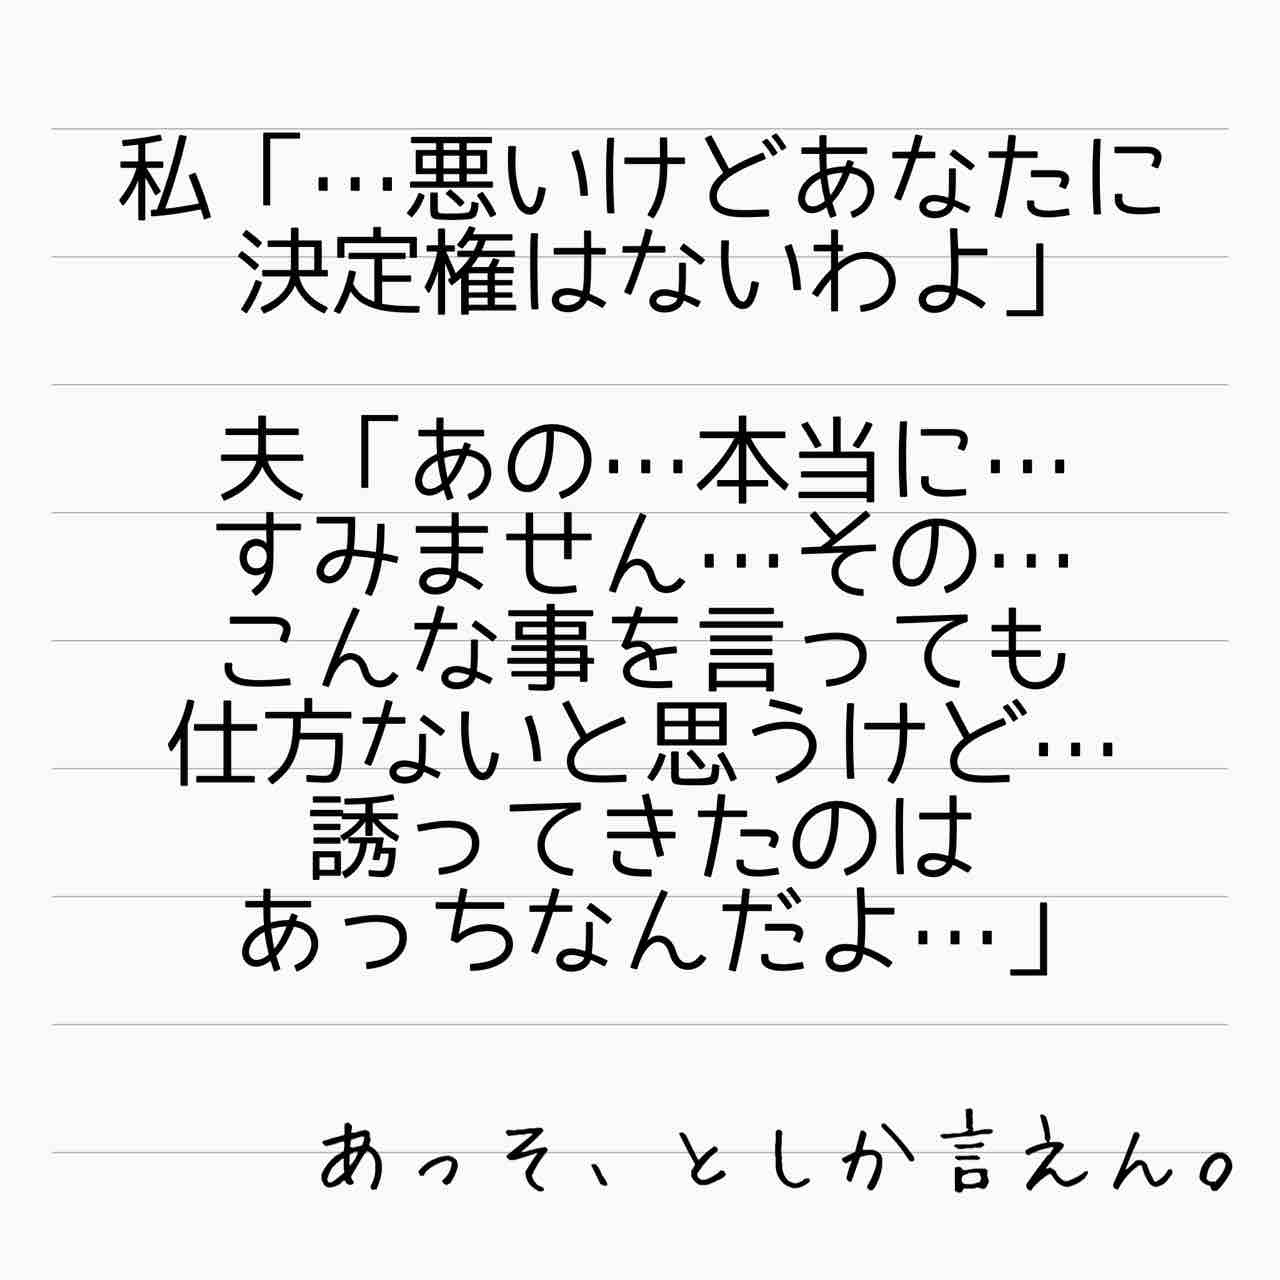 私「…悪いけどあなたに
決定権はないわよ」
夫「あの…本当に…
すみません…その…
こんな事を言っても
仕方ないと思うけど…
誘ってきたのは
あっちなんだよ…」
あっそ、としか言えん。